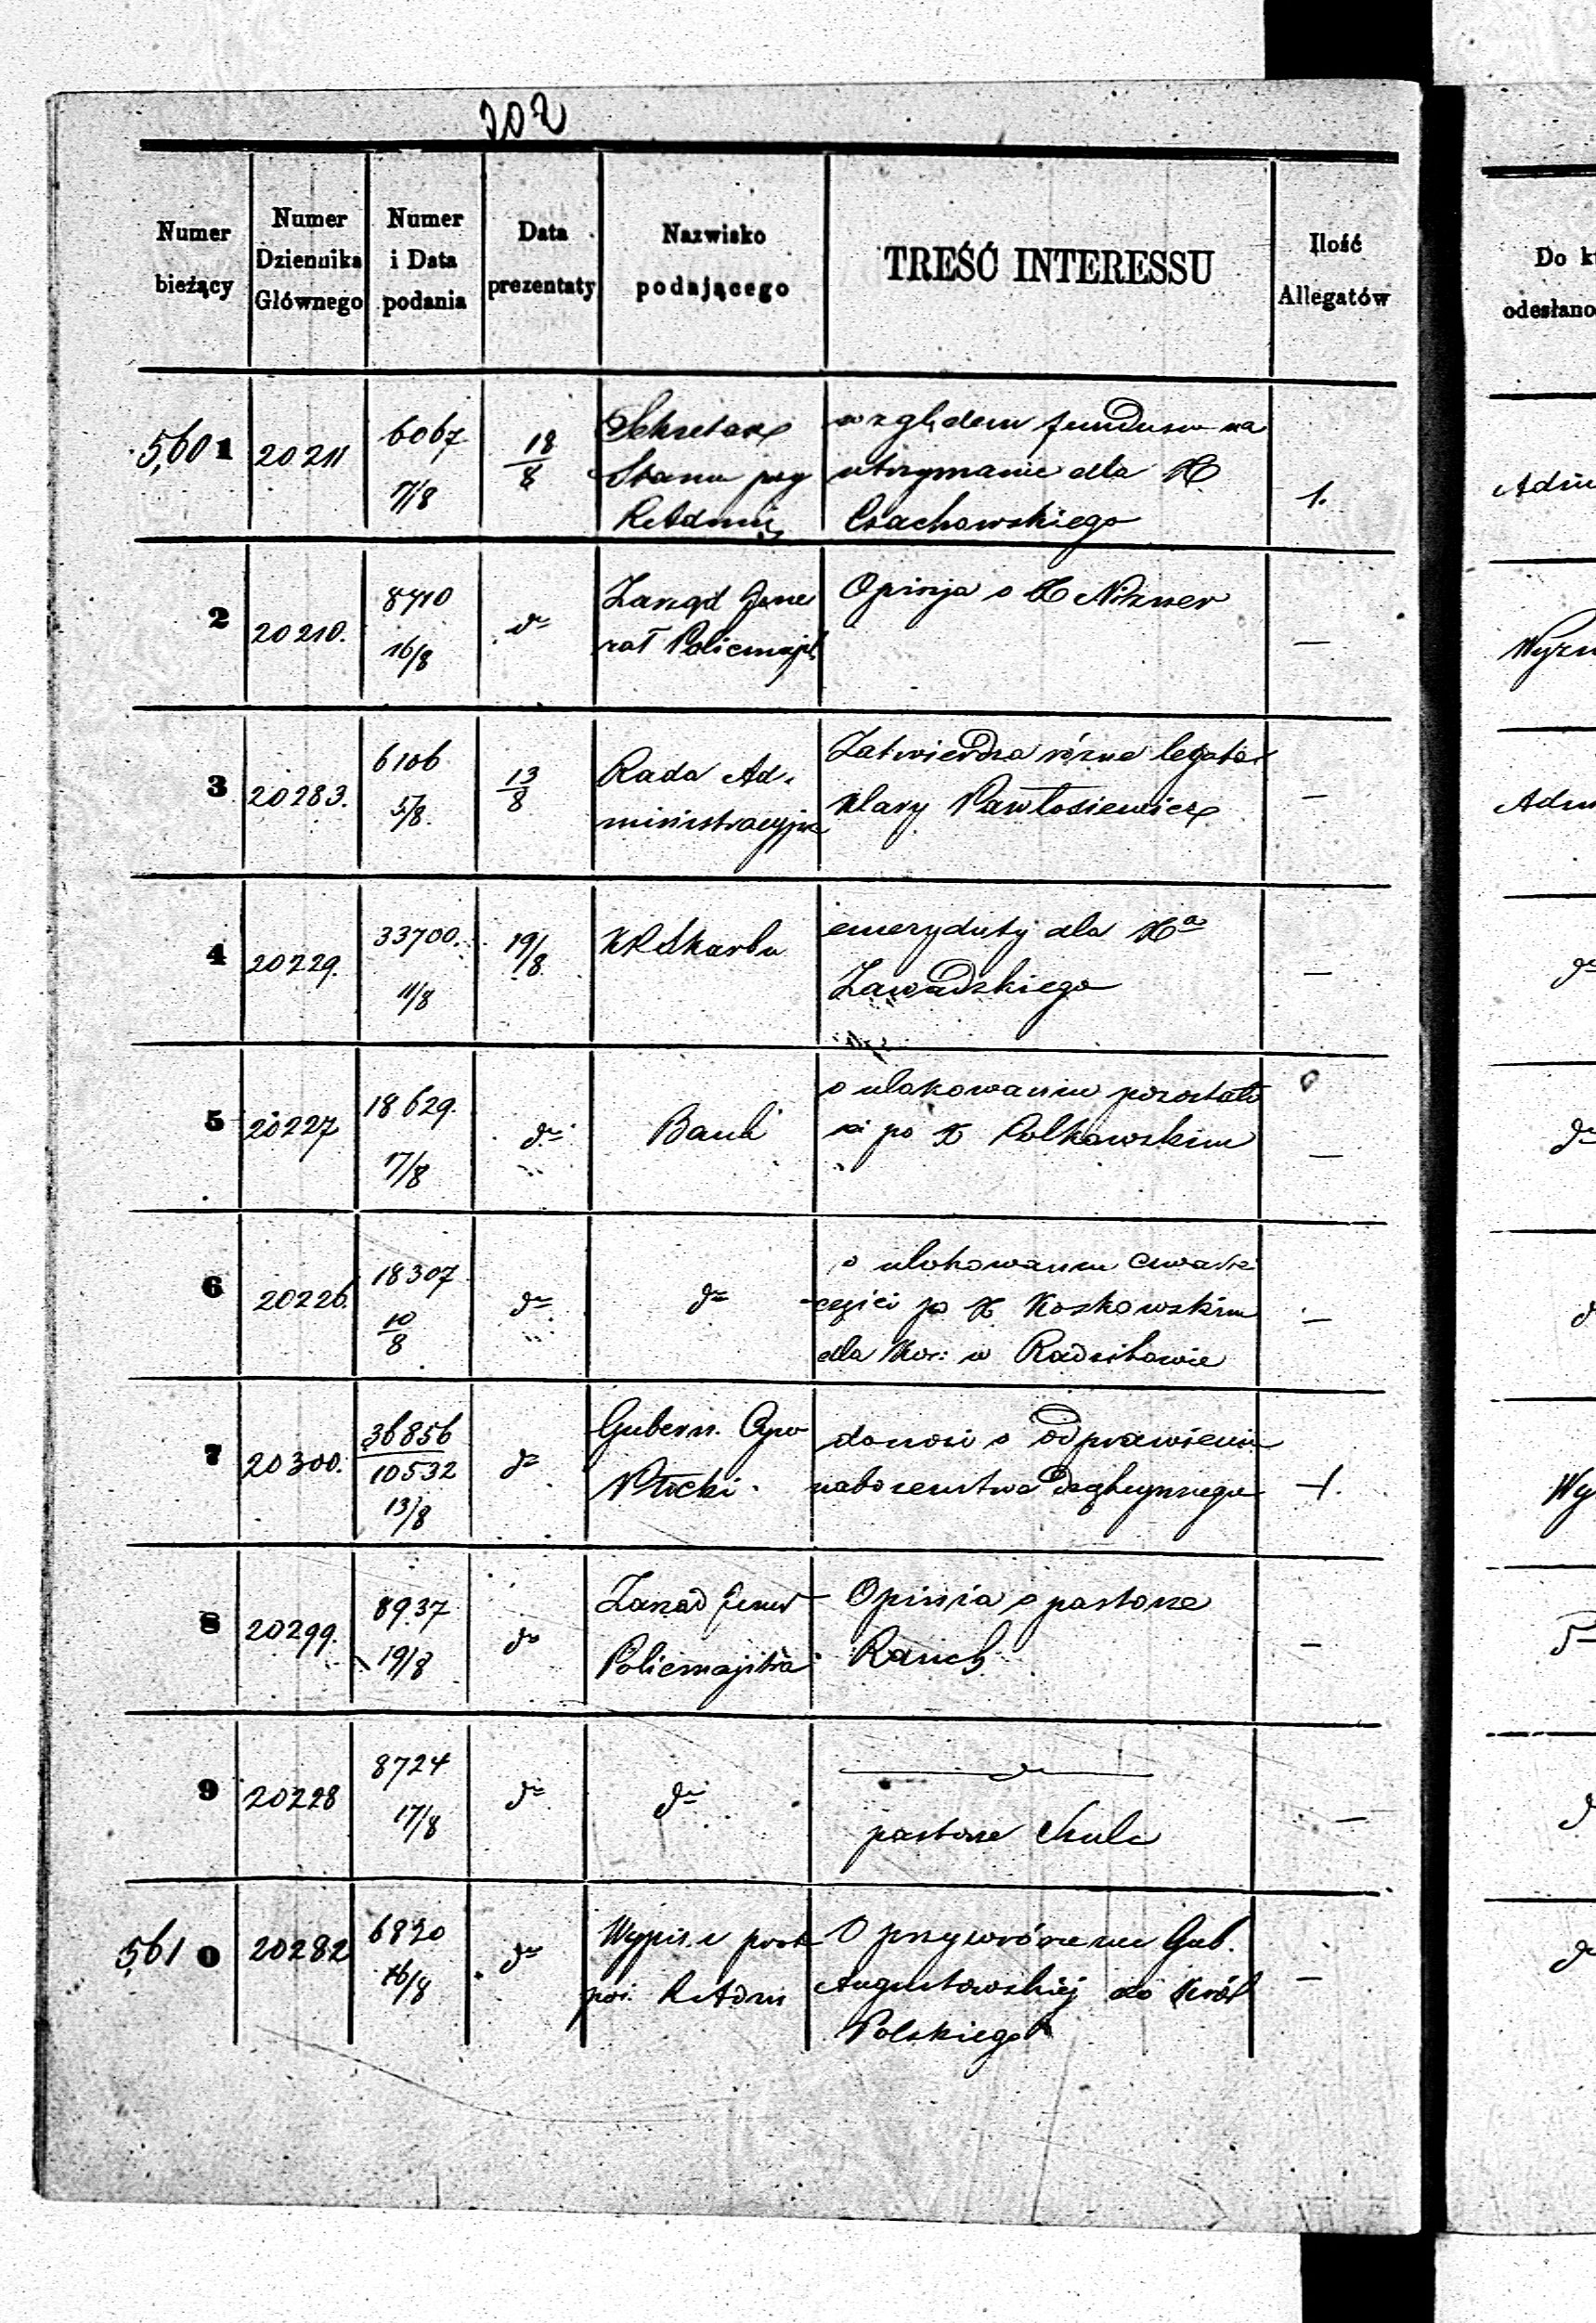 202
Numer bieżący
Numer Dziennika Głównego
Numer i Data podania
Data prezentaty
Nazwisko podającego
TREŚĆ INTERESSU
Ilość Allegatów
Do k
odesłano
5601 20211 6067 17/8 18/8
Sekretarz
Stanu przy
RAdmin
względem funduszu na
utrzymanie dla X
Czachowskiego
1.
2 20210. 8710 16/8 do
Zarząd Gene
rał Policmajst
Opinja o X Nizner
—
3 20283. 6106 5/8. 13/8
Rada Ad-
ministracyjna
Zatwierdza różne legata
Klary Pawłosiewicz
—
4 20229. 33700. 11/8 19/8
KRSkarbu
emerytuty dla Xa
Zawadzkiego
—
5 20227 18629. 17/8 do
Bank
o ulokowaniu pozostało
ści po X Polkowskim
—
6 20226. 18307 10/8 do
do
o ulokowaniu czwartej
części po X Koszkowskim
dla Koś: w Radzikowie
—
7 20300. 36856 10532 13/8 do
Gubern. Cyw
Płocki.
donosi o odprawieniu
nabożeństwa
1.
8 20299. 8937 19/8 do
Zarząd Gener
Policmajstra
Opinia o pastorze
Rauch
—
9 20228 8724 17/8 do
do
do
pastorze Szulc
—
5610 20282 6820 16/8 do
Wypis z prot
pos. RAdm
O przywróceniu Gub.
Augustowskiéj do Król
Polskiego
—